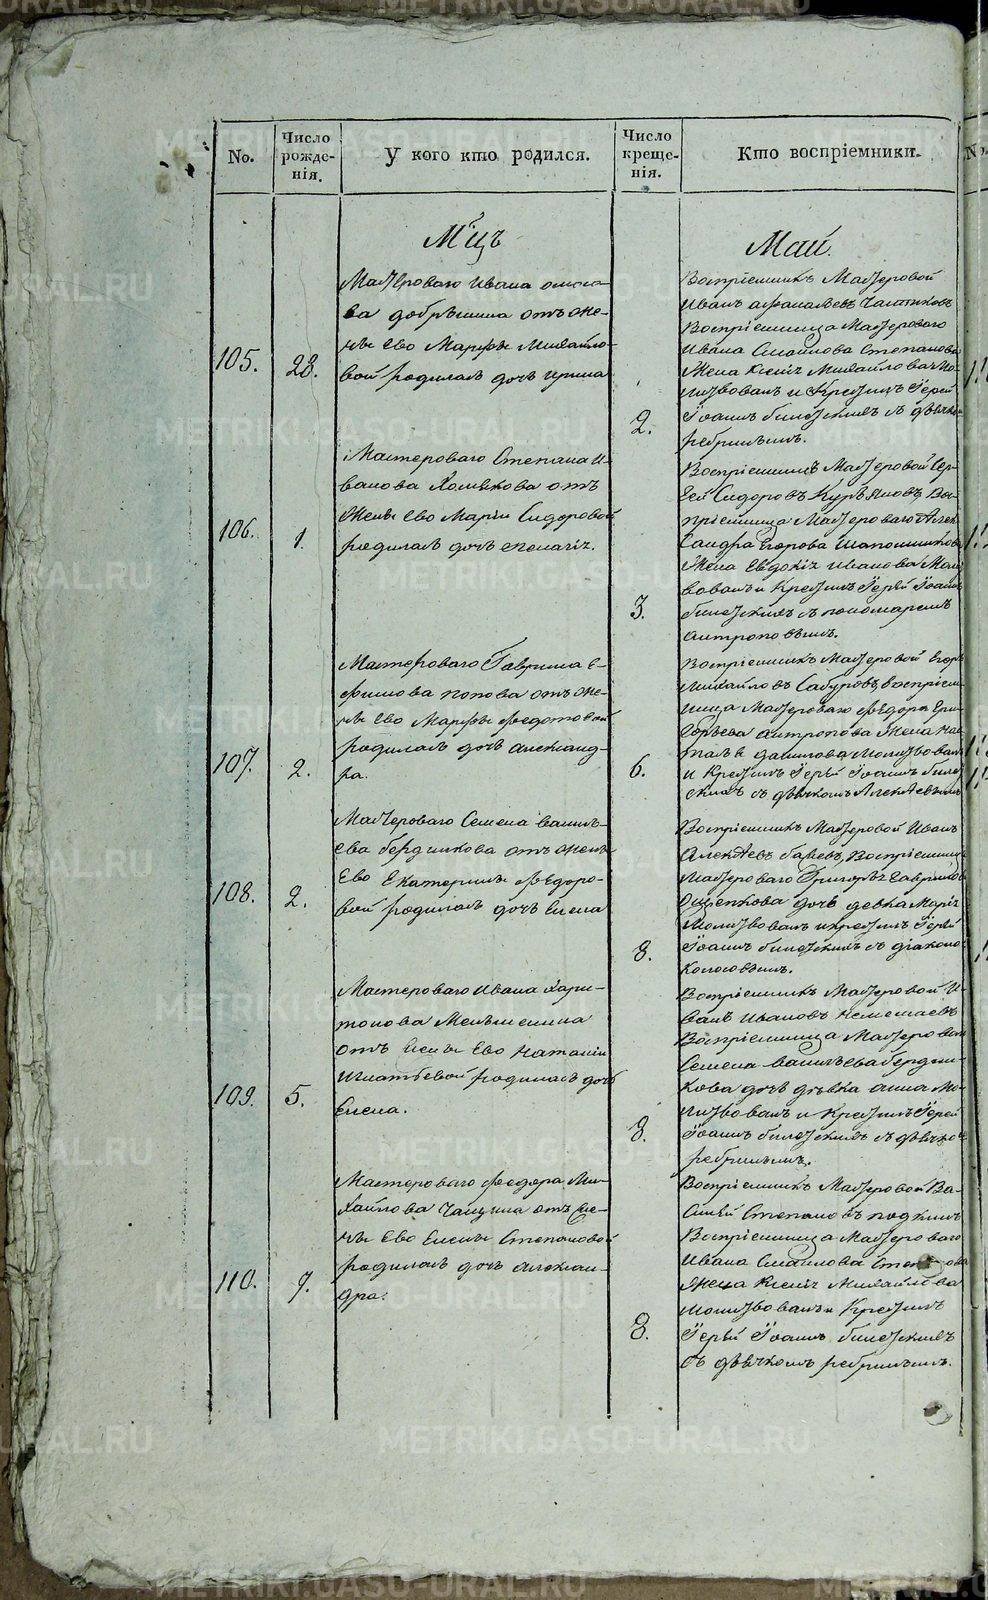 No.
Число рожде-
нія.
У кого кто родился.
Число креще-
нія.
Кто воспріемники.
М҃цъ
Маій.
105.
28.
Мастероваго Ивана
ва добрынина отъ же-
ны Ево Марѳы Михайло-
вой родилась дочь Ирина
2.
Воспріемникъ Мастеровой
Иванъ Афанасьевъ
Воспріемница Мастероваго
Ивана Степанова
Жена Ксенія Михайлова Мо-
литвовалъ и Крестилъ Іерей
Іоаннъ билетскихъ съ дьячко
ребринымъ.
106.
1.
Мастероваго Степана И-
ванова Холмякова отъ
Жены Ево Маріи Сидоровой
родилась дочь Пелагія.
3.
Воспріемникъ Мастеровой Сер-
гей Сидоровъ Вос-
пріемница Мастероваго Алек
сандра Егорова Шапошникова
Жена Евдокія Иванова Моли
вовалъ и Крестилъ Іерей Іоаннъ
билетскихъ съ пономаремъ
антроповымъ.
107.
2.
Мастероваго Гаврила Е-
фимова попова отъ же-
ны Ево Марѳы Федотовой
родилась дочь Александ-
ра.
6.
Воспріемникъ Мастеровой Егоръ
Михайловъ Сабуровъ, воспріем-
ница Мастероваго Федора Гри-
горьева антропова Жена Нас
данилова Молитвовалъ
и Крестилъ Іерей Іоаннъ билет
скихъ съ дьячкомъ Алексѣевымъ
108.
2.
Мастероваго Семена Василь-
ева бердникова отъ жены
Ево Екатерины Федоро-
вой родилась дочь Елена
8.
Воспріемникъ Мастеровой Иванъ
Алексѣевъ Воспріемница
Мастероваго Григорья Гаврилова
дочь девка Марія
Молитвовалъ и крестилъ Іерей
Іоаннъ билетскихъ съ діакономъ
Колосовымъ.
109.
5.
Мастероваго Ивана Хари-
тонова Меньшенина
отъ Жены Ево Наталіи
Игнатьевой родилась дочь
Елена.
8.
Воспріемникъ Мастеровой И-
ванъ Ивановъ
Воспріемница Мастероваго
Семена Васильева бердни-
кова дочь дѣвка анна Мо-
литвовалъ и Крестилъ Іерей
Іоаннъ билетскихъ съ дьячко
ребринымъ.
110.
7.
Мастероваго Федора Ми-
хайлова Чащина отъ Же-
ны Ево Елены Степановой
родилась дочь Алексан-
дра.
8.
Воспріемникъ Мастеровой Ва-
силей Степановъ
Воспріемница Мастероваго
Ивана
Жена Ксенія Михайлова
Молитвовалъ и Крестилъ
Іерей Іоаннъ билетскихъ
съ дьячкомъ ребринымъ.
METRIKI.GASO-URAL.RU